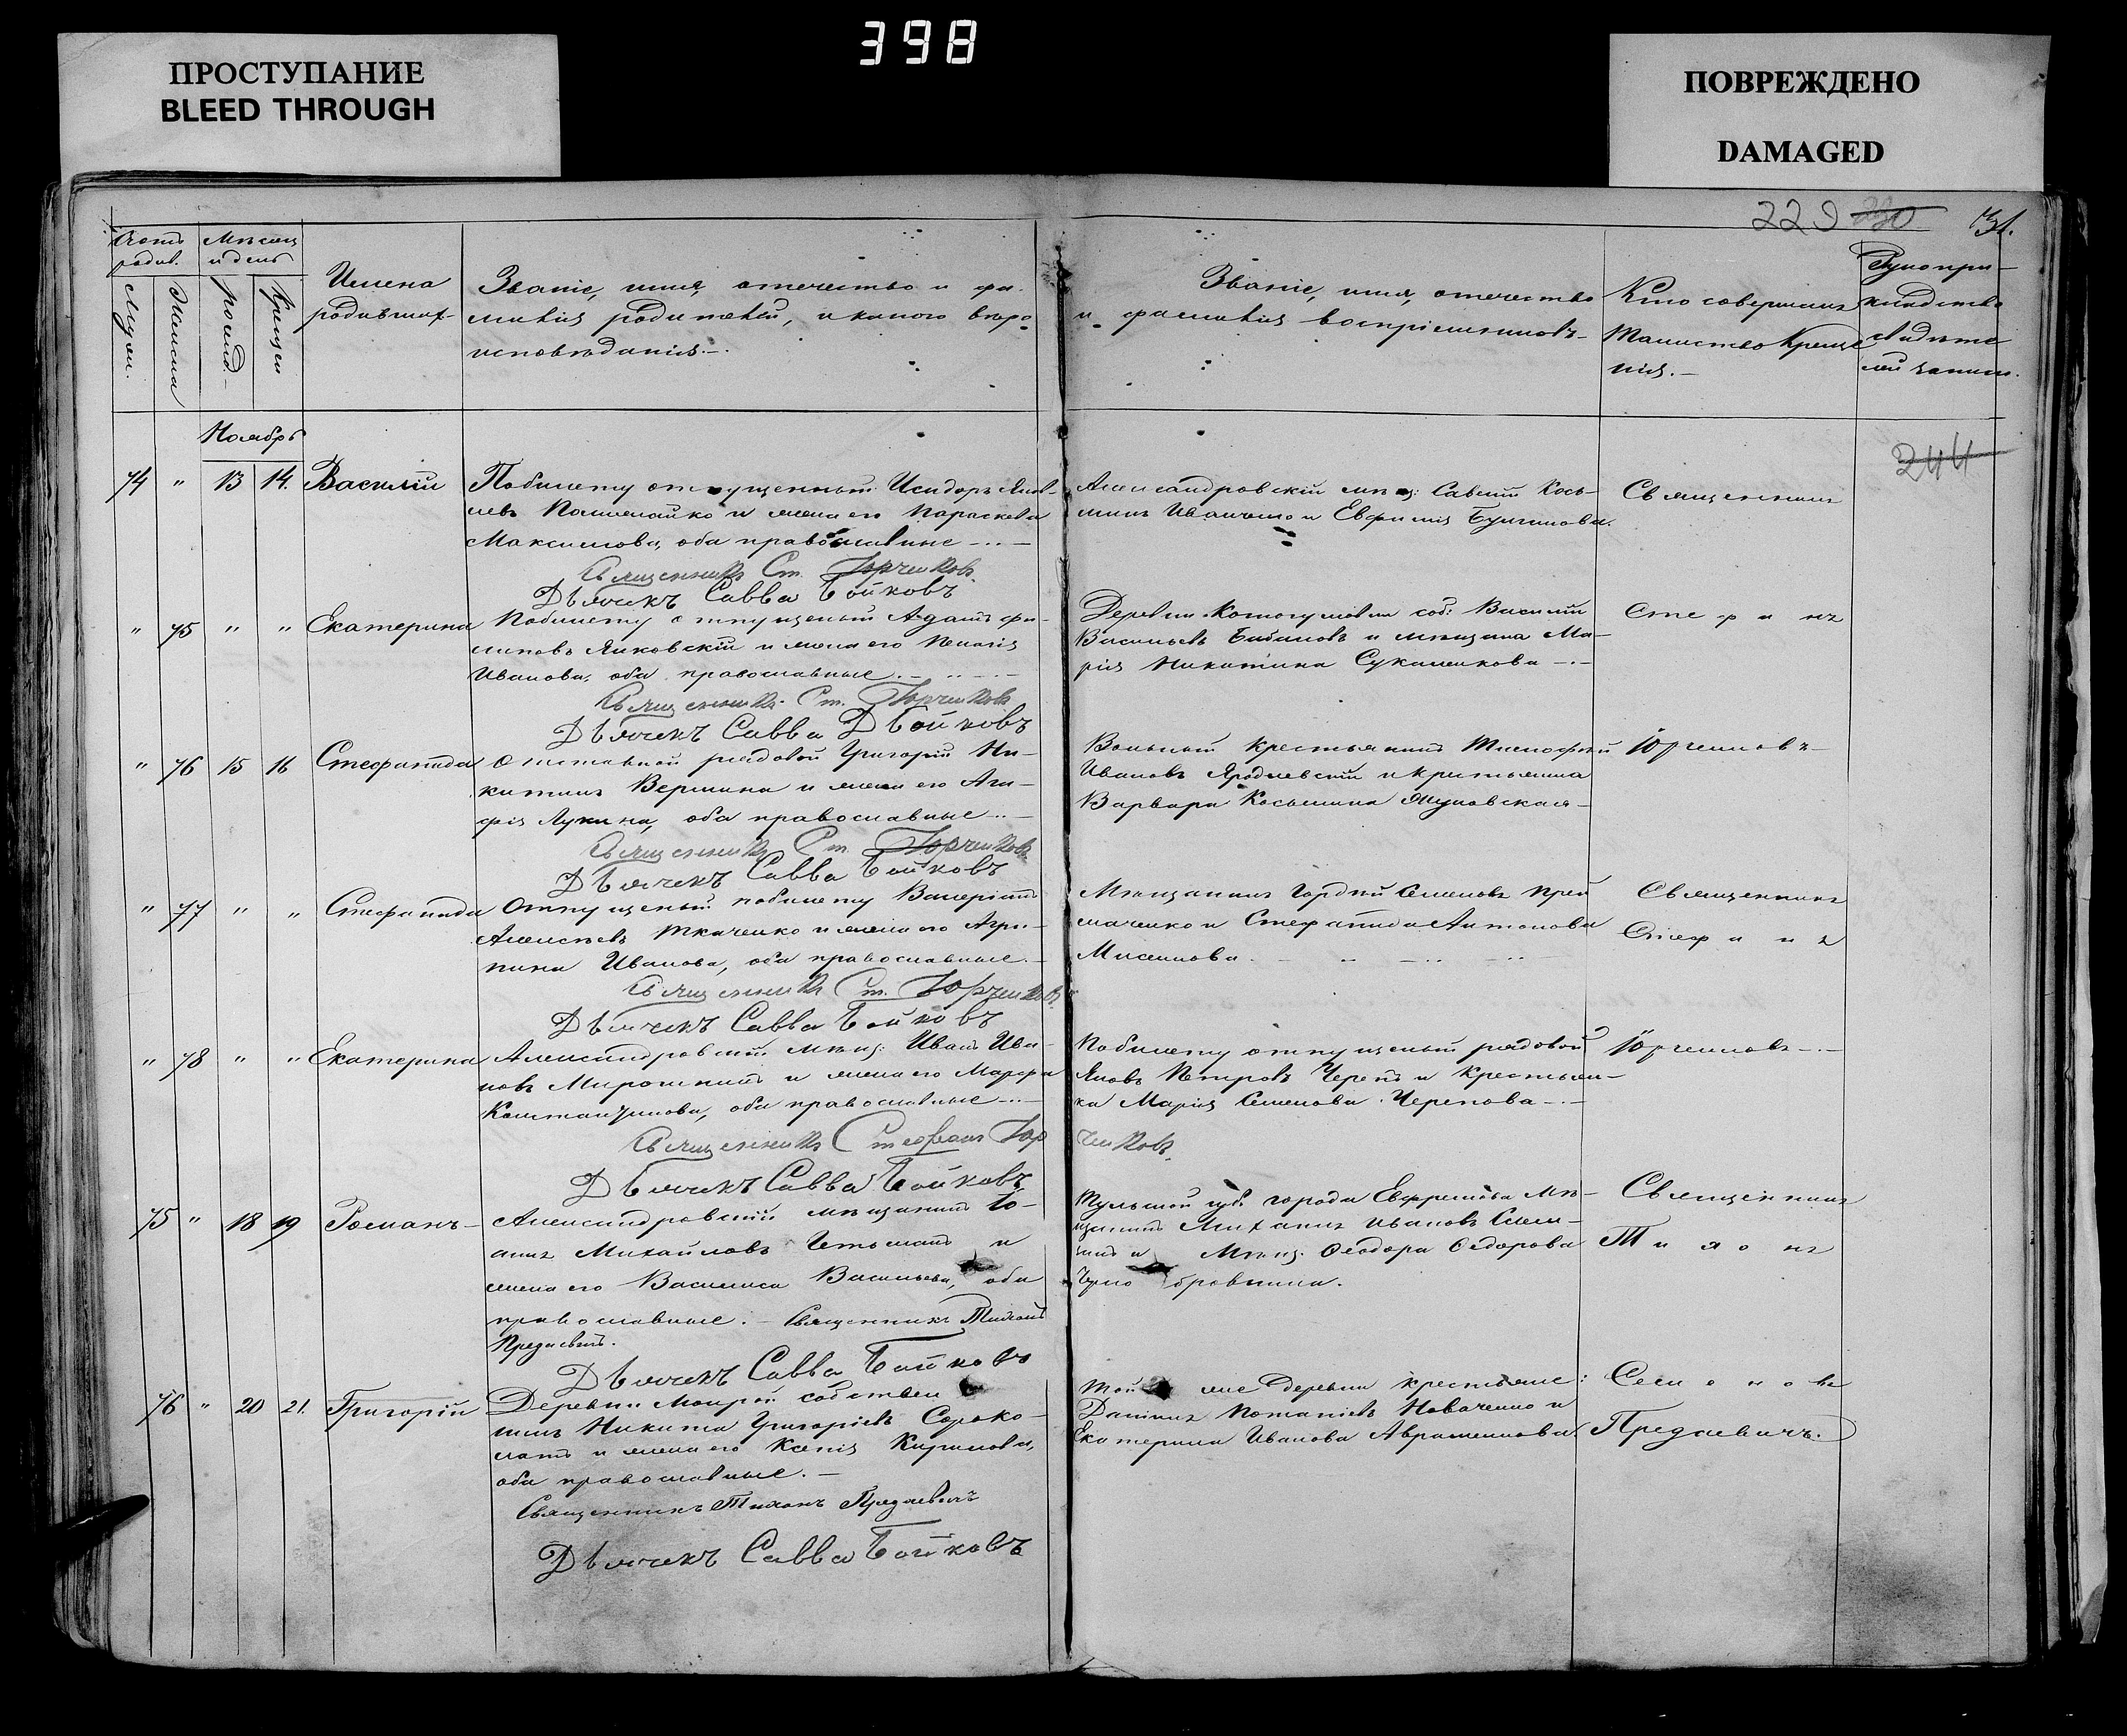 398
ПРОСТУПАНИЕ
BLEED THROUGH
ПОВРЕЖДЕНО
DAMAGED
229 230 31.
Счетъ родив.
Мѣсяцъ и день
Муж.
Женска
рожд.
крещен
Имена
родивших
Званіе, имя, отечество и фа-
милія родителей, и какого вѣро-
исповѣданія.
Званіе, имя, отечество
и фамилія воспріемниковъ
Кто совершилъ
Таинство Креще
нія.
Рукопри-
кладство
свидѣте
лей запис.
244
Ноябрь
74 " 13 14. Василій
По билету отпущенный Исидоръ Яков-
левъ и жена его Параскева
Максимова, оба православные
Священникъ Ст. Юрченковъ
Дьячекъ Савва Бойковъ
Александровскій мѣщ: Савелій Кось-
минъ Иванченко и Евфимія
Священникъ
" 75 " " Екатерина
По билету отпущеный Адамъ Фи-
липовъ Янковскій и жена его
Иванова, оба православные
Священникъ Ст. Юрченковъ
Дьячекъ Савва Бойковъ
Деревни соб: Василій
Васильевъ и мѣщанка Ма-
рія Никитина
Стефанъ
" 76 15 16 Стефанида
Отставной рядовой Григорій Ни-
китинъ и жена его Ага-
фія Лукина, оба православные
Священникъ Ст. Юрченковъ
Дьячекъ Савва Бойковъ
Вольный крестьянинъ
Ивановъ и крестьянка
Варвара Косьмина
Юрченковъ
" 77 " " Стефанида
Отпущеный по билету Валеріанъ
Алексѣевъ Ткаченко и жена его Агри-
пина Иванова, оба православные.
Священникъ Ст. Юрченковъ
Дьячекъ Савва Бойковъ
Мѣщанинъ Гордѣй Семеновъ При
маченко и Стефанида Антонова
Священникъ
Стефанъ
" 78 " " Екатерина
Александровскій мѣщ: Иванъ Ива-
новъ Мирошникъ и жена его Марфа
Константинова, оба православные
Священникъ Стефанъ Юр
ченковъ
Дьячекъ Савва Бойковъ
По билету отпущеный рядовой
Яковъ Петровъ Черепъ и крестьян-
ка Марія Семенова Черепова
Юрченковъ
75 " 18 19 Романъ
Александровскій мѣщанинъ Іо-
аннъ Михайловъ Гетьманъ и
жена его Василиса Васильева, оба
православные. Священникъ Тихонъ
Предаевичъ.
Дьячекъ Савва Бойковъ
Тульской губ. города Ефремова мѣ-
щанинъ Михаилъ Ивановъ
и Мѣщ. Феодора Федорова
Священникъ
Тихонъ
76 " 20 21. Григорій
Деревни Мокрой собствен
никъ Никита Григоріевъ Сороко-
латъ и жена его Ксенія Кирилова,
оба православные.
Священникъ Тихонъ Предаевичъ
Дьячекъ Савва Бойковъ
Той же деревни крестьяне:
Даніилъ Потапіевъ Новаченко и
Екатерина Иванова Авраменкова.
Семеновъ
Предаевичъ.